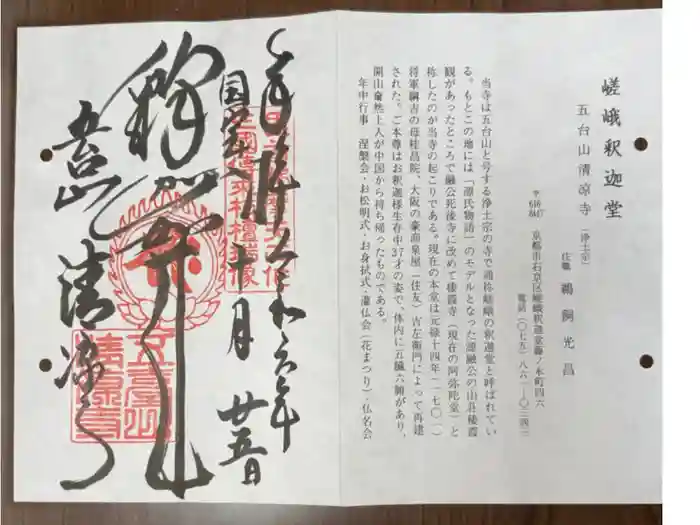 嵯峨釈迦堂
五台山清凉寺(浄土宗)
住職 鵜飼光昌
京都市右京区嵯峨釈迦堂藤ノ木町四六
電話(〇七五)八六一-〇三四三
当寺は五台山と号する浄土宗の寺で通称嵯峨の釈迦堂と呼ばれてい
る。もとこの地には「源氏物語」のモデルとなった源融公の山荘棲霞
観があったところで融公死後寺に改めて棲霞寺(現在の阿弥陀堂)と
称したのが当寺の起こりである。現在の本堂は元禄十四年(一七〇一)
将軍綱吉の母桂昌院、大阪の豪商泉屋(住友)吉左衛門によって再建
された。ご本尊はお釈迦様生存中37才の姿で、体内に五臓六腑があり、
開山奝然上人が中国から持ち帰ったものである。
年中行事 涅槃会・お松明式・お身拭式・灌仏会(花まつり)・仏名会
奉拝 令和六年
国宝
十月 廿五日
五台山 清凉寺